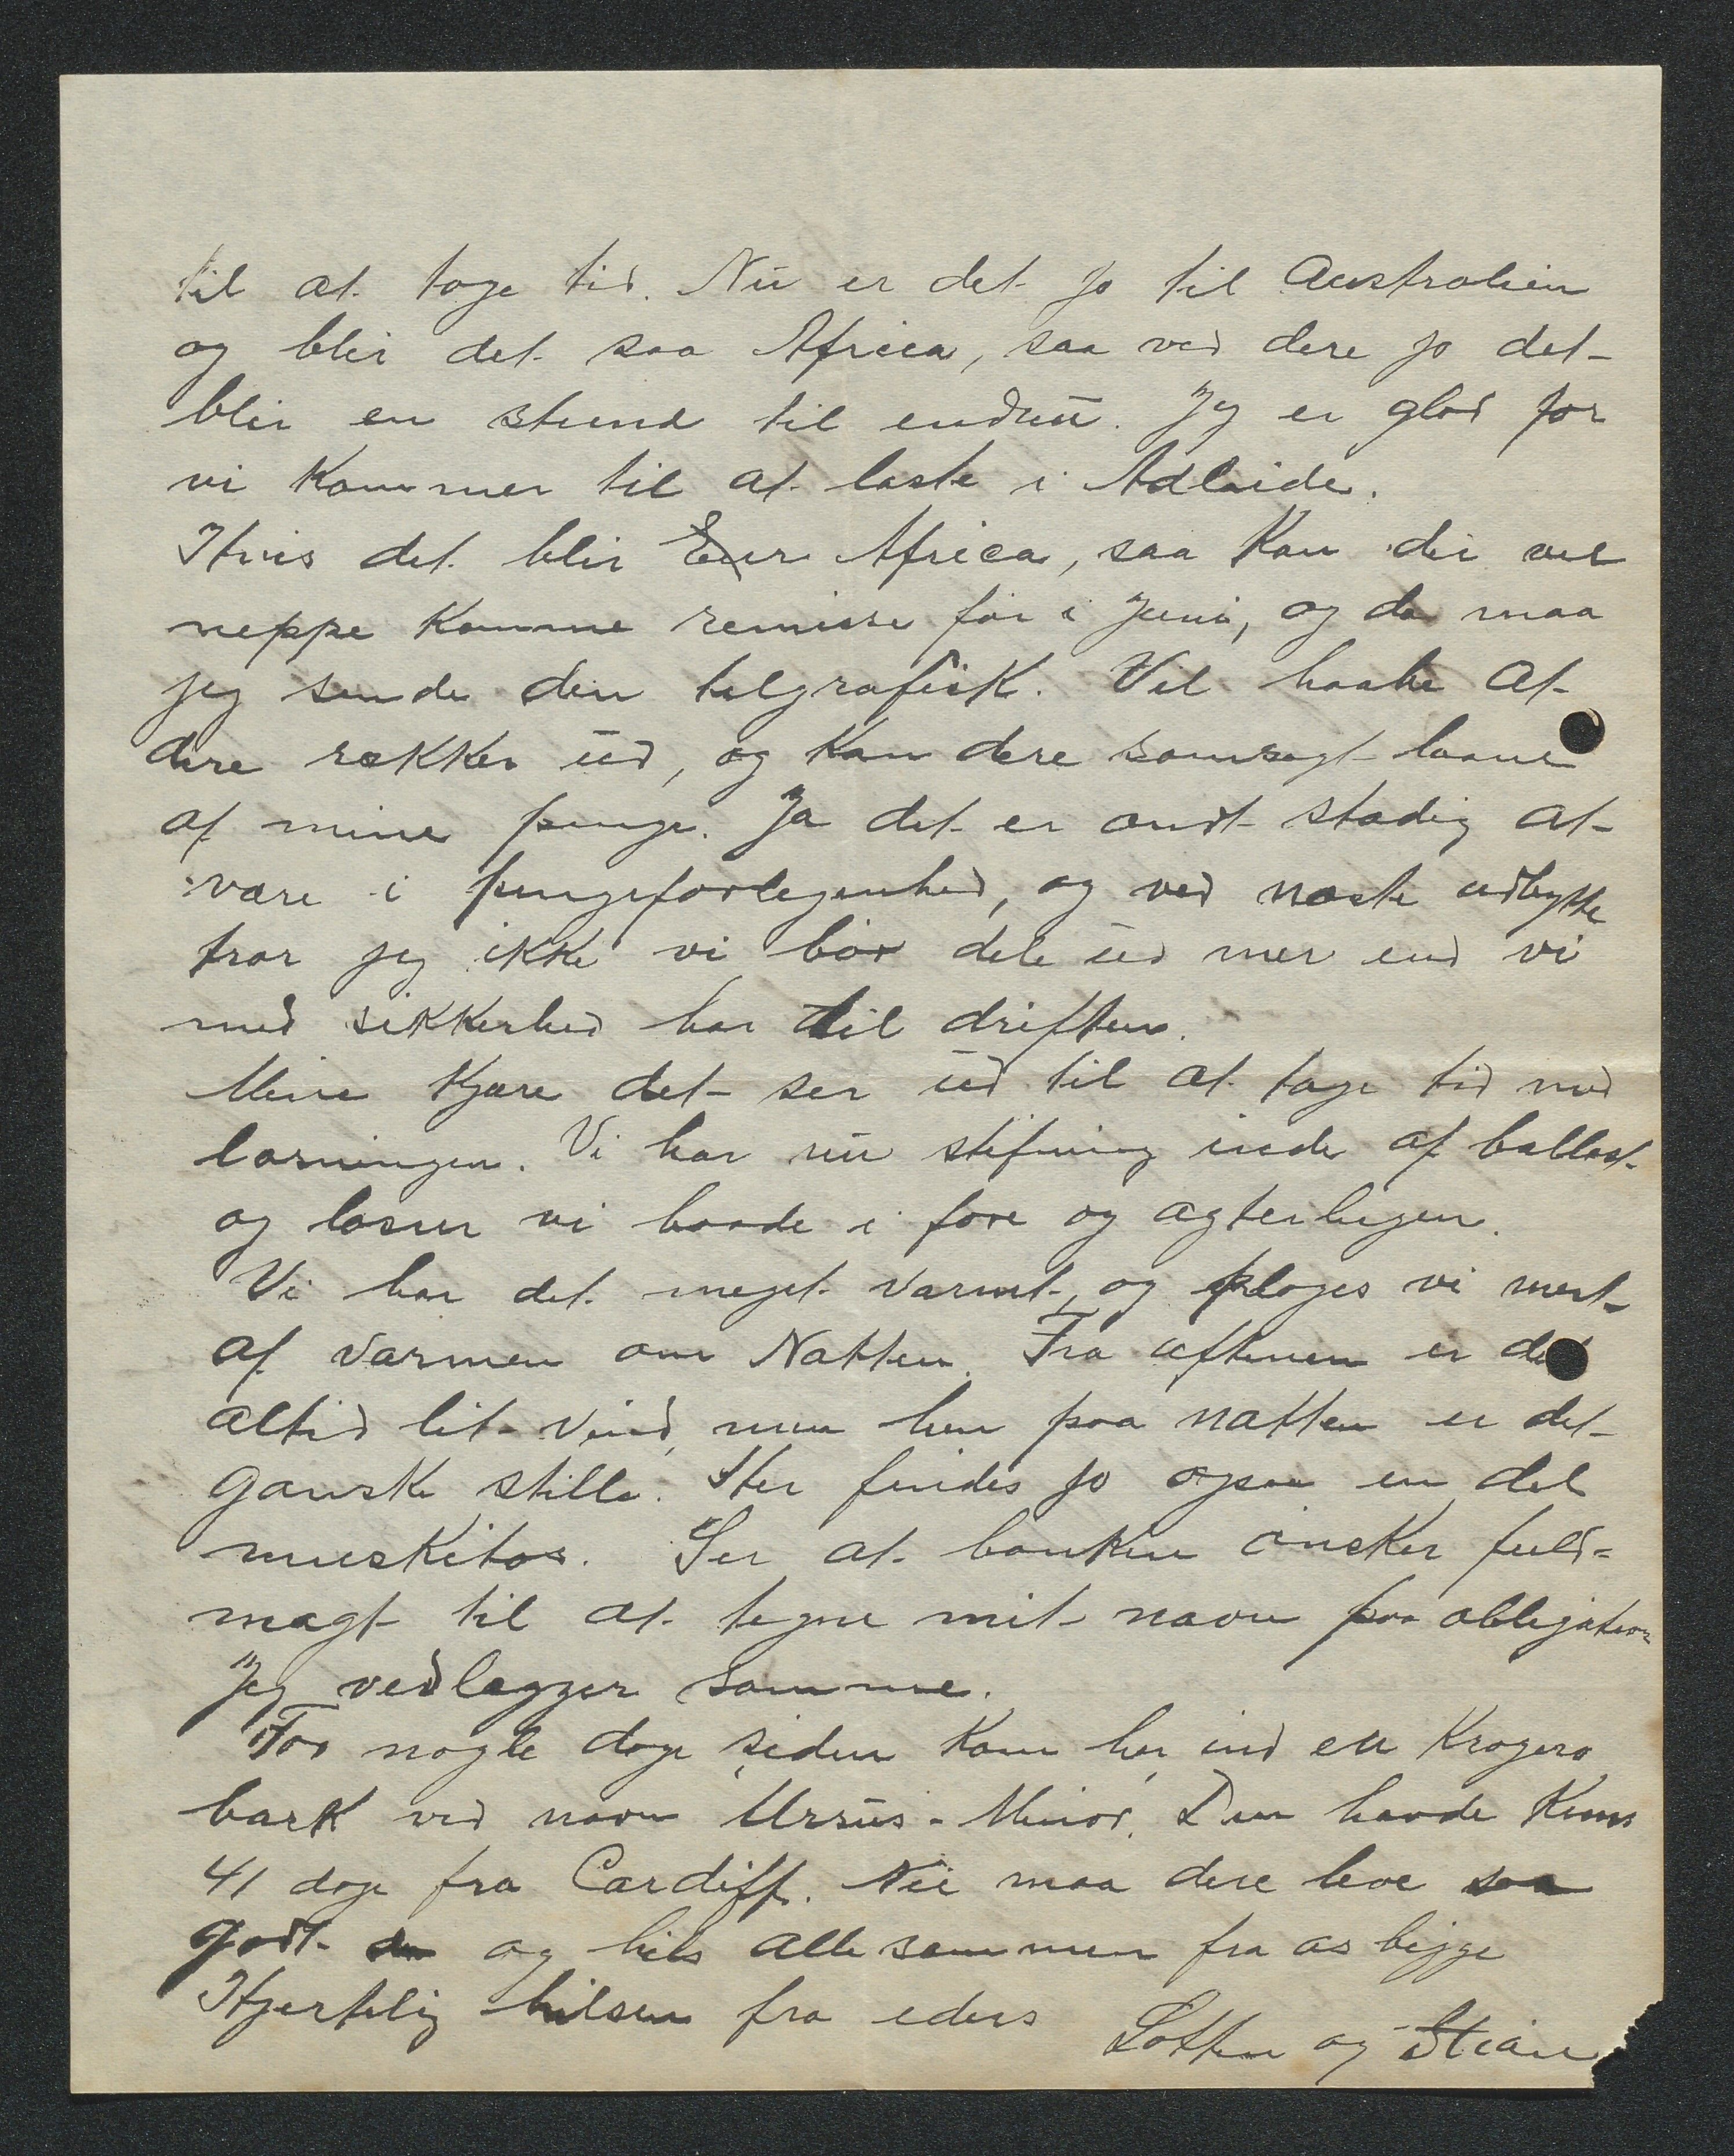 til at tage tid. Nu er det jo til Australien
og blir det saa Africa, saa ved dere jo det
blir en stund til endnu. Jeg er glad for
vi kommer til at laste i Adlaide.
Hvis det blir Eur Africa, saa kan der vel
neppe komme remisse før i Juni, og da maa
jeg sende den telgrafisk. Vil haabe at
dere rækker ud, og kan dere somsagt laane
af mine penge. Ja det er ondt stadig at
være i pengeforlegenhed, og ved næste udbytte
tror jeg ikke vi bør dele ud mer end vi
med sikkerhed har til driften.
Mine kjære det ser ud til at tage tid med
losningen. Vi har nu stifning inde af ballast
og losser vi baade i fore og agterlugen.
Vi har det meget varmt, og plages vi mest
af varmen om Natten. Fra aftenen er det
altid lit vind, men hen paa natten er det
ganske stille. Her findes jo ogsaa en del
muskitos. Ser at banken ønsker fuld-
magt til at tegne mit navn paa obligation
Jeg vedlægger samme.
For nogle dage siden kom her ind en Kragerø
bark ved navn Ursus-Minor. Den havde kuns
41 dage fra Cardiff. Nu maa dere leve saa
godt og hils alle sammen fra os begge
Hjertelig hilsen fra eders
Lotten og Stian